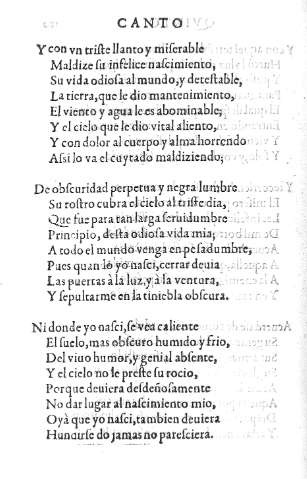 CANTO
Y con vn triste llanto y miserable
Maldize su infelice nascimiento,
Su vida odiosa al mundo, y detestable,
La tierra, que le dio mantenimiento,
El viento y agua le es abominable;
Y el cielo que le dio vital aliento,
Y con dolor al cuerpo y alma horrendo
Assi lo va el cuytado maldiziendo;
De obscuridad perpetua y negra lumbre
Su rostro cubra el cielo al triste dia,
Que fue para tan larga seruidumbre
Principio, desta odiosa vida mia;
A todo el mundo venga en pesadumbre,
Pues quan lo yo nasci, cerrar deuia
Las puertas à la luz, y à la ventura,
Y sepultarme en la tiniebla obscura.
Ni donde yo nasci, se vea caliente
El suelo, mas obscuro humido y frio,
Del viuo humor, y genial absente,
Y el cielo no le preste su rocio,
Porque deuiera desdeñosamente
No dar lugar al nascimiento mio,
Oyà que yo nasci, tambien deuiera
Hundirse do jamas no paresciera.